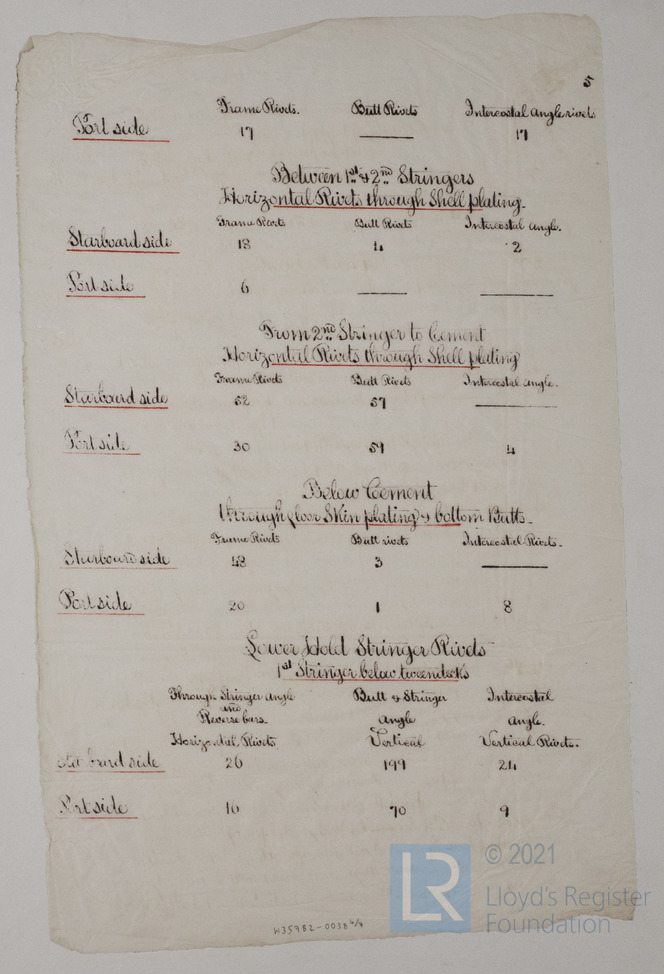 5
Frame Rivets. Butt Rivets Intercostal Angle rivets
Port side 17 —— 17
Between 1st & 2nd Stringers
Horizontal Rivets through Shell plating.
Frame Rivets Butt Rivets Intercostal Angle.
Starboard side 18 14 2
Port side 6 —— ——
From 2nd Stringer to Cement
Horizontal Rivets through Shell plating
Frame Rivets Butt Rivets Intercostal Angle.
Starboard side 52 57 ——
Port side 30 59 4
Below Cement
through floor Skin plating & bottom Butts.
Frame Rivets Butt rivets Intercostal Rivets.
Starboard side 48 3 ——
Port side 20 1 8
Lower Hold Stringer Rivets
1st Stringer below tweendecks
Through Stringer angle Butt & Stringer Intercostal
and
Reverse bars. angle angle.
Horizontal Rivets Vertical Vertical Rivets.
Starboard side 26 199 24
Port side 16 70 9
W35982-0038
LR
© 2021
Lloyd's Register
Foundation